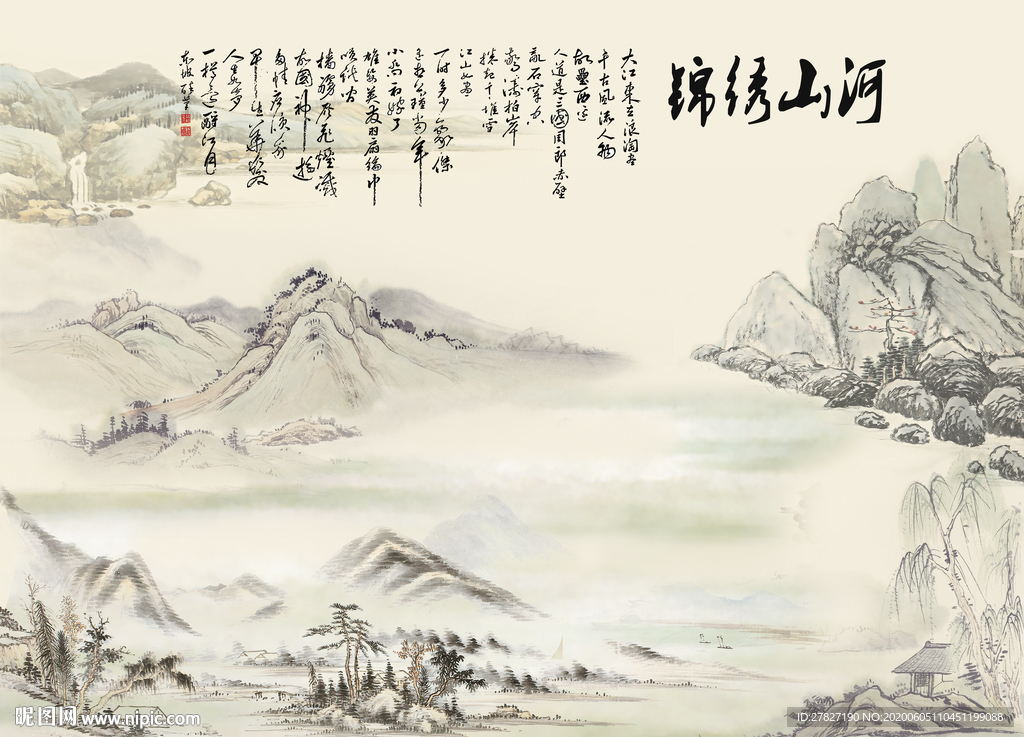 锦绣山河
大江東去浪淘尽
千古風流人物
故壘西边
人道是三國周郎赤壁
亂石穿空
驚濤拍岸
捲起千堆雪
江山如畫
一时多少豪傑
遥想公瑾当年
小乔初嫁了
雄姿英发羽扇綸巾
談笑间
樯橹灰飞煙滅
故國神遊
多情应笑我
早生華发
人生如夢
一樽還酹江月
东坡
昵图网 www.nipic.com
ID:27827190 NO:20200605110451199088